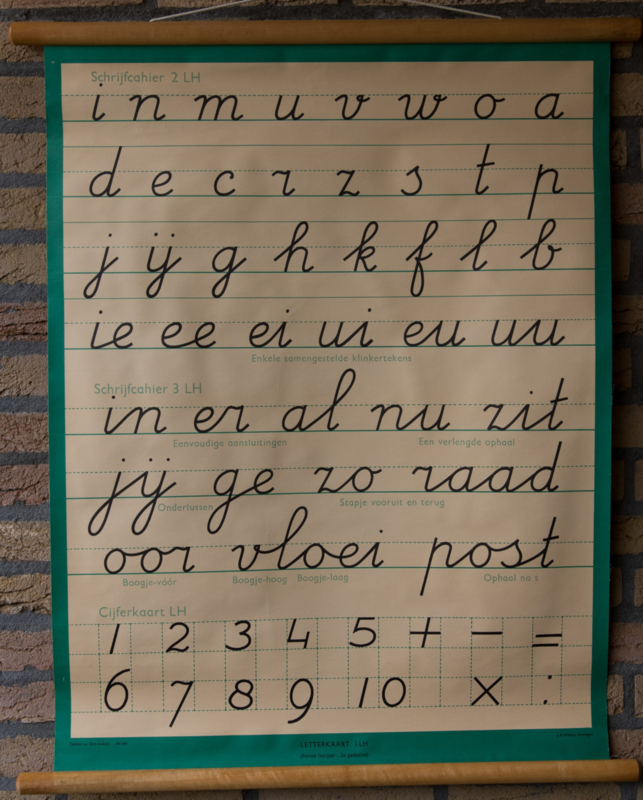 Schrijfcahier 2 LH
i n m u v w o a
d e c r z s t p
j ij g h k f l b
ie ee ei ui eu uu
Enkele samengestelde klinkertekens
Schrijfcahier 3 LH
in er al nu zit
Eenvoudige aansluitingen Een verlengde ophaal
jij ge zo raad
Onderlussen Stapje vooruit en terug
oor vloei post
Boogje-vóór Boogje-hoog Boogje-laag Ophaal na s
Cijferkaart LH
1 2 3 4 5 + − =
6 7 8 9 10 × :
LETTERKAART 1 LH